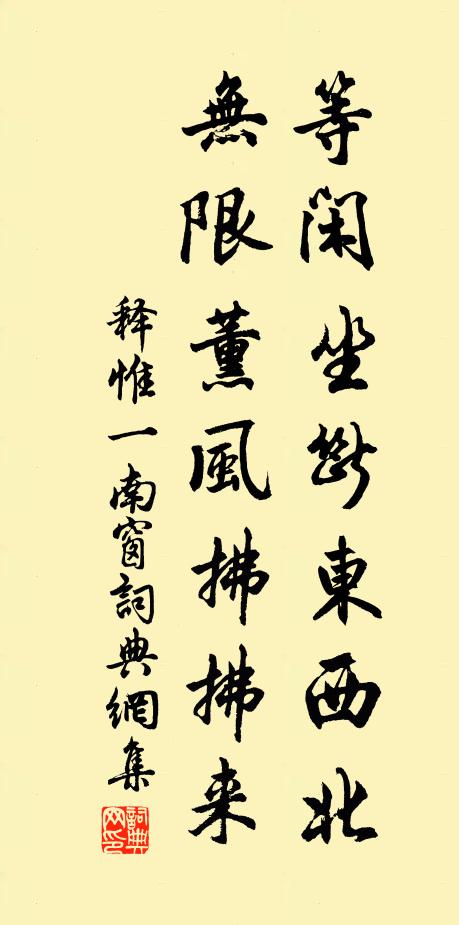 等閑坐斷東西北
無限薰風拂拂来
释惟一南窗詞典網集
詞典网印